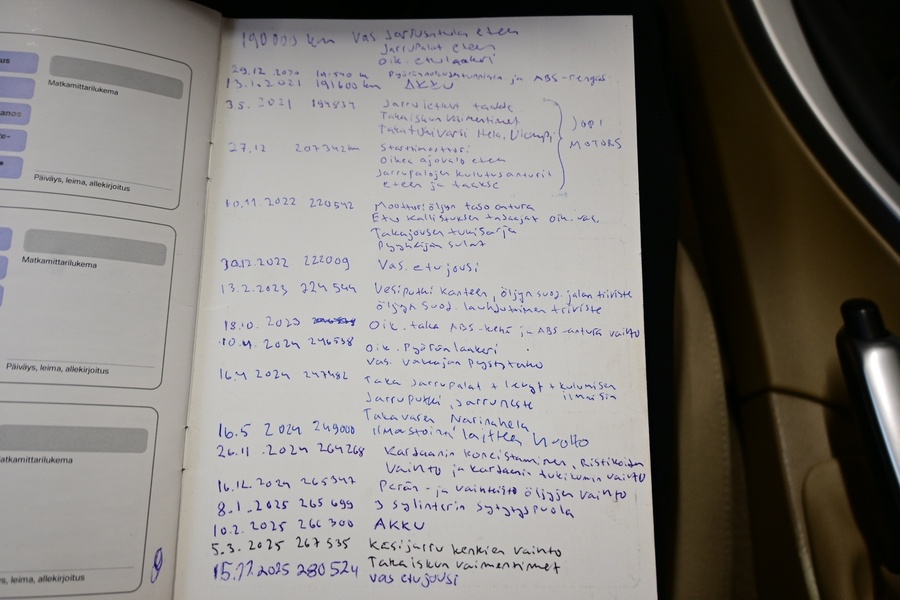 us
anos
te-
Matkamittarilukema
Päiväys, leima, allekirjoitus
Matkamittarilukema
Päiväys, leima, allekirjoitus
atkamittarilukema
s, leima, allekirjoitus
190 000 km Vas Jarrusatula eteen
Jarrupalat eteen
Oik. etulaakeri
29.12.2020 ja ABS-rengas
13.1.2021 191600 km AKKU
3.5.2021 194837 Jarruletkut taakse
Takaiskun vaimentimet
Takatukivarsi Hela, Ulompi
JOPI
MOTORS
27.12 207342km Starttimoottori
Oikea ajovalo eteen
Jarrupalojen kulutusanturit
eteen ja taakse
10.11.2022 220542 Moottoriöljyn taso anturi
Etu kallistuksen tasaajat oik. vas.
Takajousen tukisarja
Pyyhkijän sulat
30.12.2022 222009 Vas. etujousi
13.2.2023 224544 Vesiputki kanteen, öljyn suod. jalan tiiviste
öljyn suod. lauhduttimen tiiviste
18.10.2023 Oik. taka ABS-kehä ja ABS-anturi vaihto
10.4.2024 246538 Oik. Pyöränlaakeri
Vas. Vakaajan Pystytuko
16.4 2024 247482 Taka Jarrupalat + levyt + kulumisen
ilmaisin
Jarruputki, Jarruneste
Takavasen Narinahela
16.5 2024 249000 Ilmastointi laitteen huolto
26.11.2024 264268 Kardaanin koneistaminen, Ristikoiden
vaihto ja kardaanin tukikumin vaihto
16.12.2024 265347 Perän- ja vaihteisto öljyjen vaihto
8.1.2025 265 699 3 sylinterin sytytyspuola
10.2.2025 266 300 AKKU
5.3.2025 267 535 Käsijarru kenkien vaihto
15.12.2025 280524 Takaiskun vaimentimet
vas etujousi